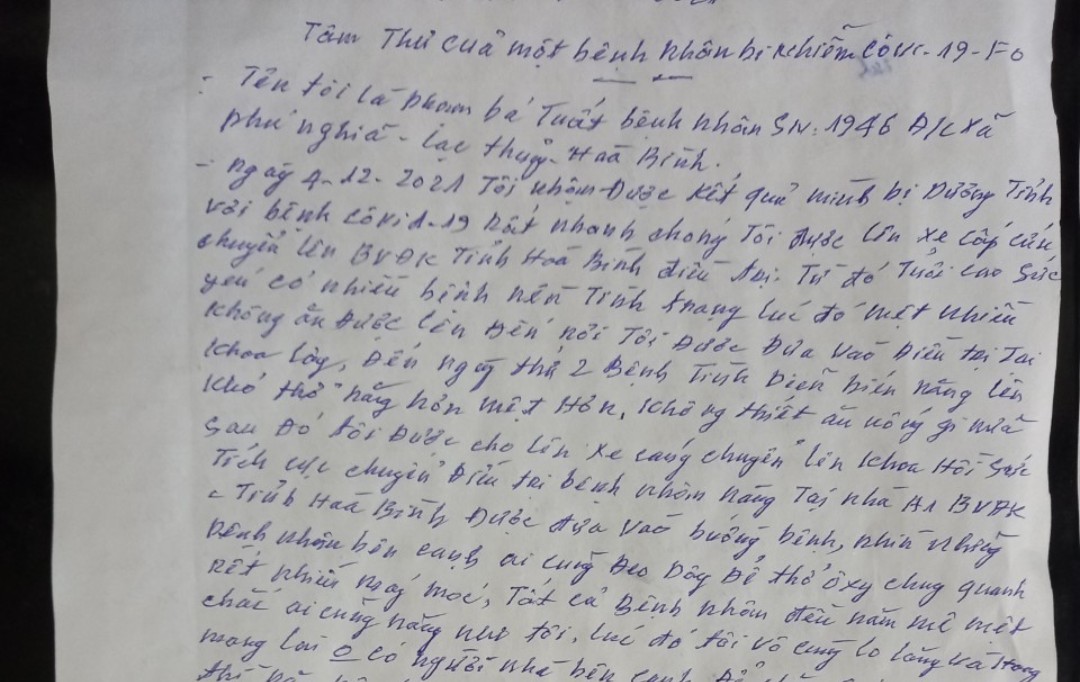 Tâm Thư của một bệnh nhân bị nhiễm Côvi-19-F0
- Tên tôi là phạm bá Tuất bệnh nhân SN: 1946 Đ/C Xã
phú nghĩa - Lạc thuỷ - Hoà Bình.
- ngày 4-12-2021 Tôi nhận Được Kết quả mình bị Dương Tính
với bệnh Côvid-19 Rất nhanh chóng Tôi được lên xe Cấp Cứu
chuyển lên BVĐK Tỉnh Hoà Bình điều trị. Từ đó Tuổi cao Sức
yếu có nhiều bệnh nên Tình trạng lúc đó mệt nhiều
không ăn Được lên Đến nơi Tôi Được Đưa vào Điều trị Tại
Khoa lây, Đến ngày thứ 2 Bệnh Tình Diễn biến nặng lên
Khó thở nặng hơn mệt Hơn, không thiết ăn uống gì nữa
Sau Đó tôi Được cho lên xe cáng chuyển lên Khoa Hồi Sức
Tích cực chuyên Điều trị bệnh nhân nặng Tại nhà A1 BVĐK
- Tỉnh Hoà Bình Được đưa vào buồng bệnh, nhìn những
Bệnh nhân bên cạnh ai cũng Đeo Dây Để thở ôxy chung quanh
rất nhiều máy móc, Tất cả Bệnh nhân đều nằm mê mệt
chắc ai cũng nặng như tôi, lúc đó tôi vô cùng lo lắng và Hoang
mang lại 0 có người nhà bên cạnh Để